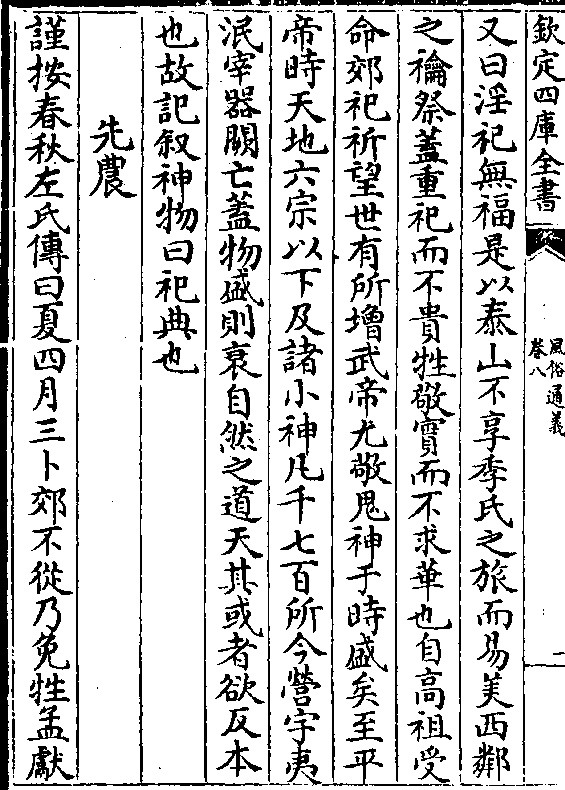 欽定四庫全書
風俗通義
卷八
一
又曰淫祀無福是以泰山不享季氏之旅而易美西鄰
之禴祭蓋重祀而不貴牲敬實而不求華也自高祖受
命郊祀祈望世有所增武帝尤敬鬼神于時盛矣至平
帝時天地六宗以下及諸小神凡千七百所今營宇夷
泯宰器闕亡蓋物盛則衰自然之道天其或者欲反本
也故記叙神物曰祀典也
先農
謹按春秋左氏傳曰夏四月三卜郊不從乃免牲孟獻